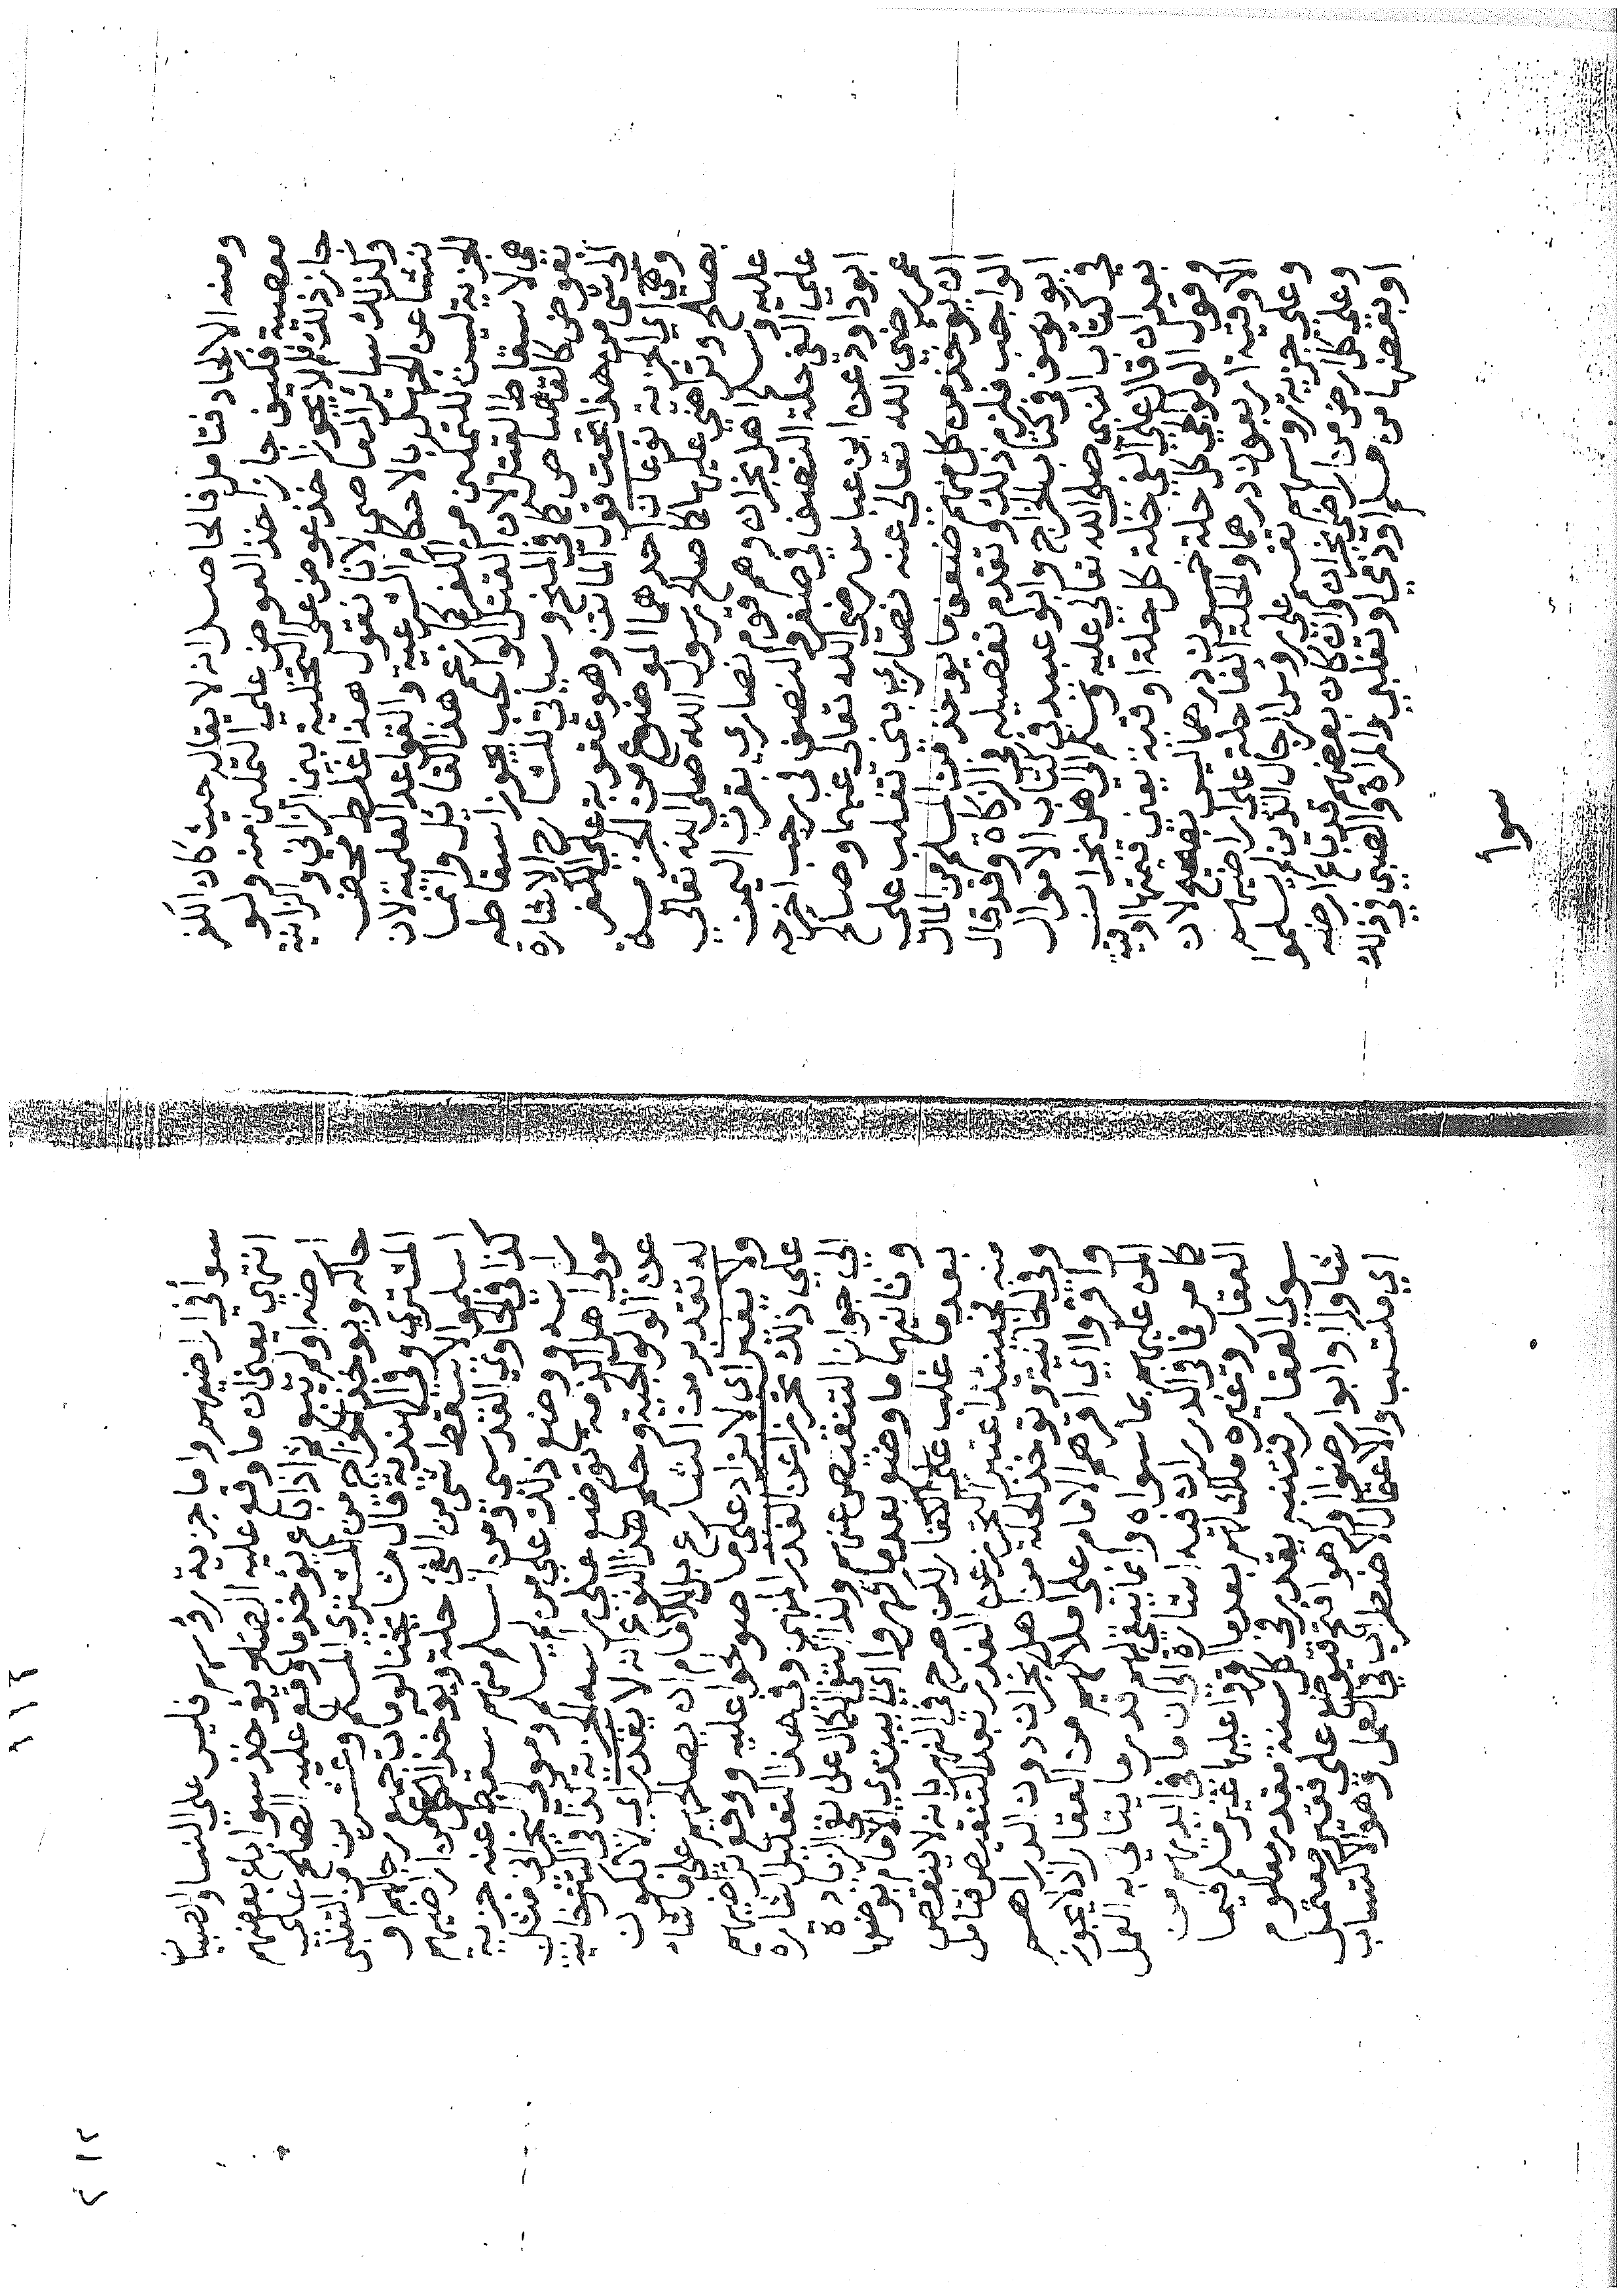 ومنه الالحاد فتامل فالحاصل انه لا يقال حيث كان الكفر
معصية فكيف جاز اخذ العوض علي التمكين منه ولو
جاز ذلك لجاز اخذ عوض علي التخلية بين الزاني والزانية
وكذلك سائر المعاصي لانا نقول هذا غلط محض
نشا عن الجهل بالاحكام الشرعية والقواعد العلمية لان
الجزية ليست للتمكين من الكفر كما زعم هذا القائل وانما
هي لاسقاط القتل لان القتل الواجب يجوز اسقاطه
بعوض كالقصاص كما في المنح وسياتي للشارح الاشارة
الي شي من هذا تحت قول الماتن وهو عقوبة علي الكفر
وهي اي الجزية نوعان احدهما الموضوع من الجزية
بصلح وتراضي عليها كما صالح رسول الله صلي الله تعالي
عليه وسلم اهل نجران وهم قوم نصاري بقرب اليمن
علي الفي حلة النصف في صفر والنصف في رجب اخرجه
ابو داود عن ابن عباس رضي الله تعالي عنهما وصالح
عمر رضي الله تعالي عنه نصاري بني تغلب علي
ان يوخذ من كل منهم ضعف ما يوخذ من المسلم من المال
الواجب فلزم ذلك وتقدم تفصيله في الزكاة وقد قال
ابو يوسف في كتاب الخراج وابو عبيد في كتاب الاموال
في كتاب النبي صلي الله تعالي عليه وسلم الي اهل نجران
بعد ان قال علي الفي حلة كل حلة اوقية يعني قيمتها اوقية
وقول الولوالجي كل حلة خمسون درهما ليس بصحيح لان
الاوقية اربعون درهما والحلة الفا حلة علي اراضيهم
وعلي جزية روسهم تقسم علي روس الرجال الذين لم يسلموا
وعلي كل ارض من اراضي نجران وان كان بعضهم قد باع ارضه
او بعضها من مسلم او ذمي او تغلبي والمراة والصبي في ذلك
سوا
سوا في اراضيهم واما جزية روسهم فليس علي النسا والصبيان
انتهي يعني ان ما وقع عليه الصلح يوخذ سوا باع بعضهم
ارضه او لم يبع ثم اذا باع يوخذ ما وقع عليه الصلح علي
حاله ويوخذ الخراج من المشتري المسلم وعشرين من التغلبي
المشتري وفي الهندية قال مشايخنا لو مات جميع رجالهم او
اسلموا لا يسقط شي من الفي حلة ويوخذ الكل من اراضيهم
كذا في الحاوي القدسي ومن اسلم منهم سقط عنه جزية
راسه ووضع ذلك علي من لم يسلم وموالي النجراني مثل
موالي اهل الذمة توضع علي راسه الجزية كذا في التتارخانية
عن الولوالجية وحكم هذا النوع انه لا يقدر اي لا يكون
له تقدير من الشارع بل للامام ان يصالحهم علي ما شاء
ولا يغير اي لا يزاد علي ما صولحوا عليه ووقع تراضيهم
علي ذلك تحرزا عن الغدر المنهي وفي هذا التعليل اشارة
الي جواز التنقيص عنهم ولذا اقتصر الكمال علي نفي الزيادة
وثانيهما ما وضع بعدما قهروا اي يبتدي الامام بوضعها
بعدما غلب علي الكفار لكن صرح في النهر بانه لا ينقص
منه فحينئذ اعتبر التحرز عن الغدر بعد التنقيص فتامل
وفي الخانية وتوخذ الحلة من اهل نجران دون الدراهم
واقروا اي اقرهم الامام علي املاكهم من العقار اذ لا يجوز
المن عليهم بما سواه وانما يبقي لهم قدر ما يتاتي به العمل
كما مر فما في الدرر ان فيه اشارة الي ان ما في ايديهم من
العقار وغيره ملك لهم بعدما اقروا عليها غير مسلم فيما
سوي العقار فتنبه يقدر في كل سنة بقدر معلوم
شاوا او ابوا رضوا او كرهوا فيوضع علي فقير معتمل
اي مكتسب والاعتمال الاضطراب في العمل وهو الاكتساب